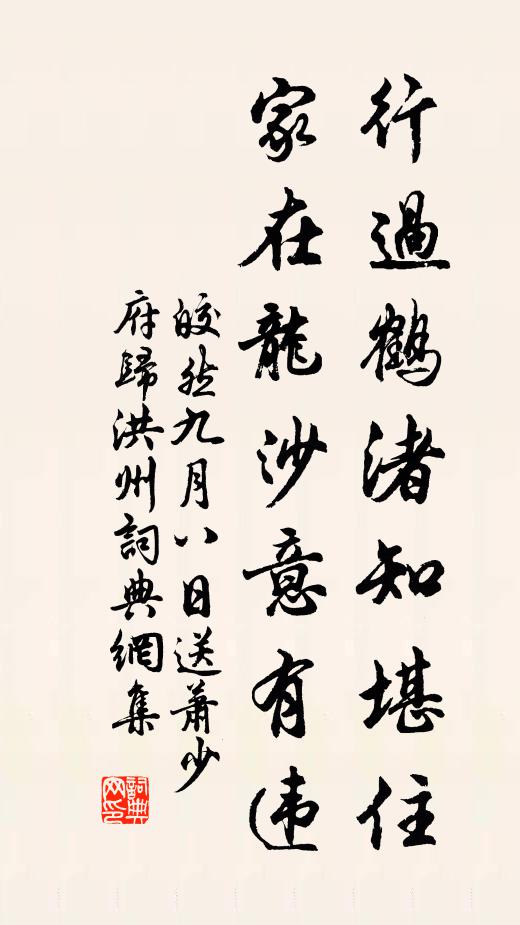 行過鶴渚知堪住
家在龍沙意有违
皎然九月八日送蕭少
府歸洪州詞典網集
詞典
网印